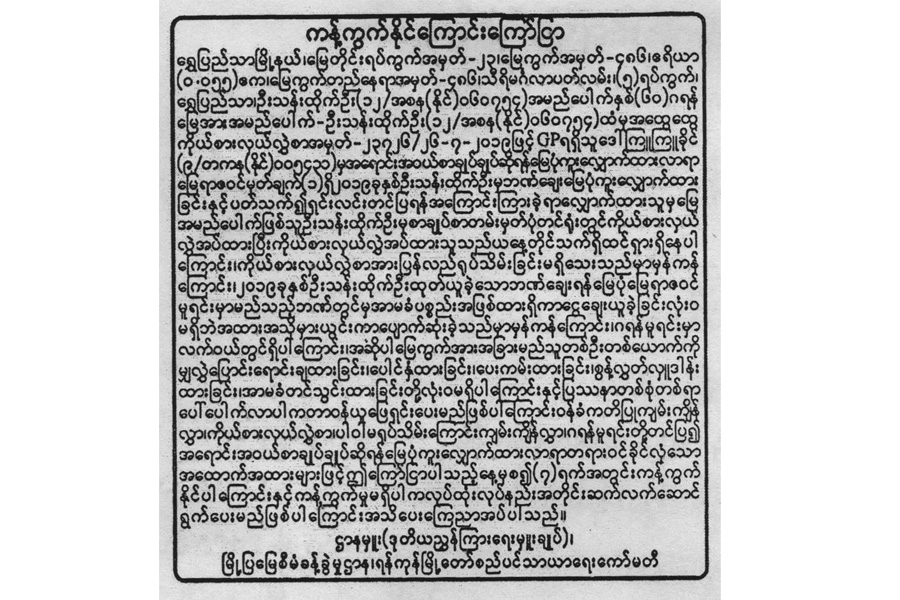 ကန့်ကွက်နိုင်ကြောင်းကြော်ငြာ
ရွှေပြည်သာမြို့နယ်၊မြေတိုင်းရပ်ကွက်အမှတ်-၂၃၊မြေကွက်အမှတ်-၄၈၆၊ဧရိယာ
(၀.၀၅၅)ဧက၊မြေကွက်တည်နေရာအမှတ်-၄၈၆၊သီရိမင်္ဂလာပတ်လမ်း၊(၅)ရပ်ကွက်၊
ရွှေပြည်သာ၊ဦးသန်းထိုက်ဦး(၁၂/အစန(နိုင်)၀၆၀၇၅၄)အမည်ပေါက်နှစ်(၆၀)ဂရန်
မြေအားအမည်ပေါက်-ဦးသန်းထိုက်ဦး(၁၂/အစန(နိုင်)၀၆၀၇၅၄)ထံမှအထွေထွေ
ကိုယ်စားလှယ်လွှဲစာအမှတ်-၂၃၇၂၆/၂၆-၇-၂၀၁၉ဖြင့်GPရရှိသူဒေါ်ကြူကြူခိုင်
(၉/တကန(နိုင်)၀၀၅၄၁၁)မှအရောင်းအဝယ်စာချုပ်ချုပ်ဆိုရန်မြေပုံကူးလျှောက်ထားလာရာ
မြေရာဇဝင်မှတ်ချက်(၁)ရှိ၂၀၁၉ခုနှစ်ဦးသန်းထိုက်ဦးမှဘဏ်ချေးမြေပုံကူးလျှောက်ထား
ခြင်းနှင့်ပတ်သက်၍ရှင်းလင်းတင်ပြရန်အကြောင်းကြားခဲ့ရာလျှောက်ထားသူမှမြေ
အမည်ပေါက်ဖြစ်သူဦးသန်းထိုက်ဦးမှစာချုပ်စာတမ်းမှတ်ပုံတင်ရုံးတွင်ကိုယ်စားလှယ်
လွှဲအပ်ထားပြီးကိုယ်စားလှယ်လွှဲအပ်ထားသူသည်ယနေ့တိုင်သက်ရှိထင်ရှားရှိနေပါ
ကြောင်း၊ကိုယ်စားလှယ်လွှဲစာအားပြန်လည်ရုပ်သိမ်းခြင်းမရှိသေးသည်မှာမှန်ကန်
ကြောင်း၊၂၀၁၉ခုနှစ်ဦးသန်းထိုက်ဦးထုတ်ယူခဲ့သောဘဏ်ချေးရန်မြေပုံမြေရာဇဝင်
မူရင်းမှာမည်သည့်ဘဏ်တွင်မှအာမခံပစ္စည်းအဖြစ်ထားရှိကာငွေချေးယူခဲ့ခြင်းလုံးဝ
မရှိဘဲအထားအသိုမှားယွင်းကာပျောက်ဆုံးခဲ့သည်မှာမှန်ကန်ကြောင်း၊ဂရန်မူရင်းမှာ
လက်ဝယ်တွင်ရှိပါကြောင်း၊အဆိုပါမြေကွက်အားအခြားမည်သူတစ်ဦးတစ်ယောက်ကို
မျှလွှဲပြောင်းရောင်းချထားခြင်း၊ပေါင်နှံထားခြင်း၊ပေးကမ်းထားခြင်း၊စွန့်လွှတ်လှူဒါန်း
ထားခြင်း၊အာမခံတင်သွင်းထားခြင်းတို့လုံးဝမရှိပါကြောင်းနှင့်ပြဿနာတစ်စုံတစ်ရာ
ပေါ်ပေါက်လာပါကတာဝန်ယူဖြေရှင်းပေးမည်ဖြစ်ပါကြောင်းဝန်ခံကတိပြုကျမ်းကျိန်
လွှာ၊ကိုယ်စားလှယ်လွှဲစာ၊ပါဝါမရုပ်သိမ်းကြောင်းကျမ်းကျိန်လွှာ၊ဂရန်မူရင်းတို့တင်ပြ၍
အရောင်းအဝယ်စာချုပ်ချုပ်ဆိုရန်မြေပုံကူးလျှောက်ထားလာရာတရားဝင်ခိုင်လုံသော
အထောက်အထားများဖြင့်ဤကြော်ငြာပါသည့်နေ့မှစ၍(၇)ရက်အတွင်းကန့်ကွက်
နိုင်ပါကြောင်းနှင့်ကန့်ကွက်မှုမရှိပါကလုပ်ထုံးလုပ်နည်းအတိုင်းဆက်လက်ဆောင်
ရွက်ပေးမည်ဖြစ်ပါကြောင်းအသိပေးကြေညာအပ်ပါသည်။
ဌာနမှူး(ဒုတိယညွှန်ကြားရေးမှူးချုပ်)၊
မြို့ပြမြေစီမံခန့်ခွဲမှုဌာန၊ရန်ကုန်မြို့တော်စည်ပင်သာယာရေးကော်မတီ